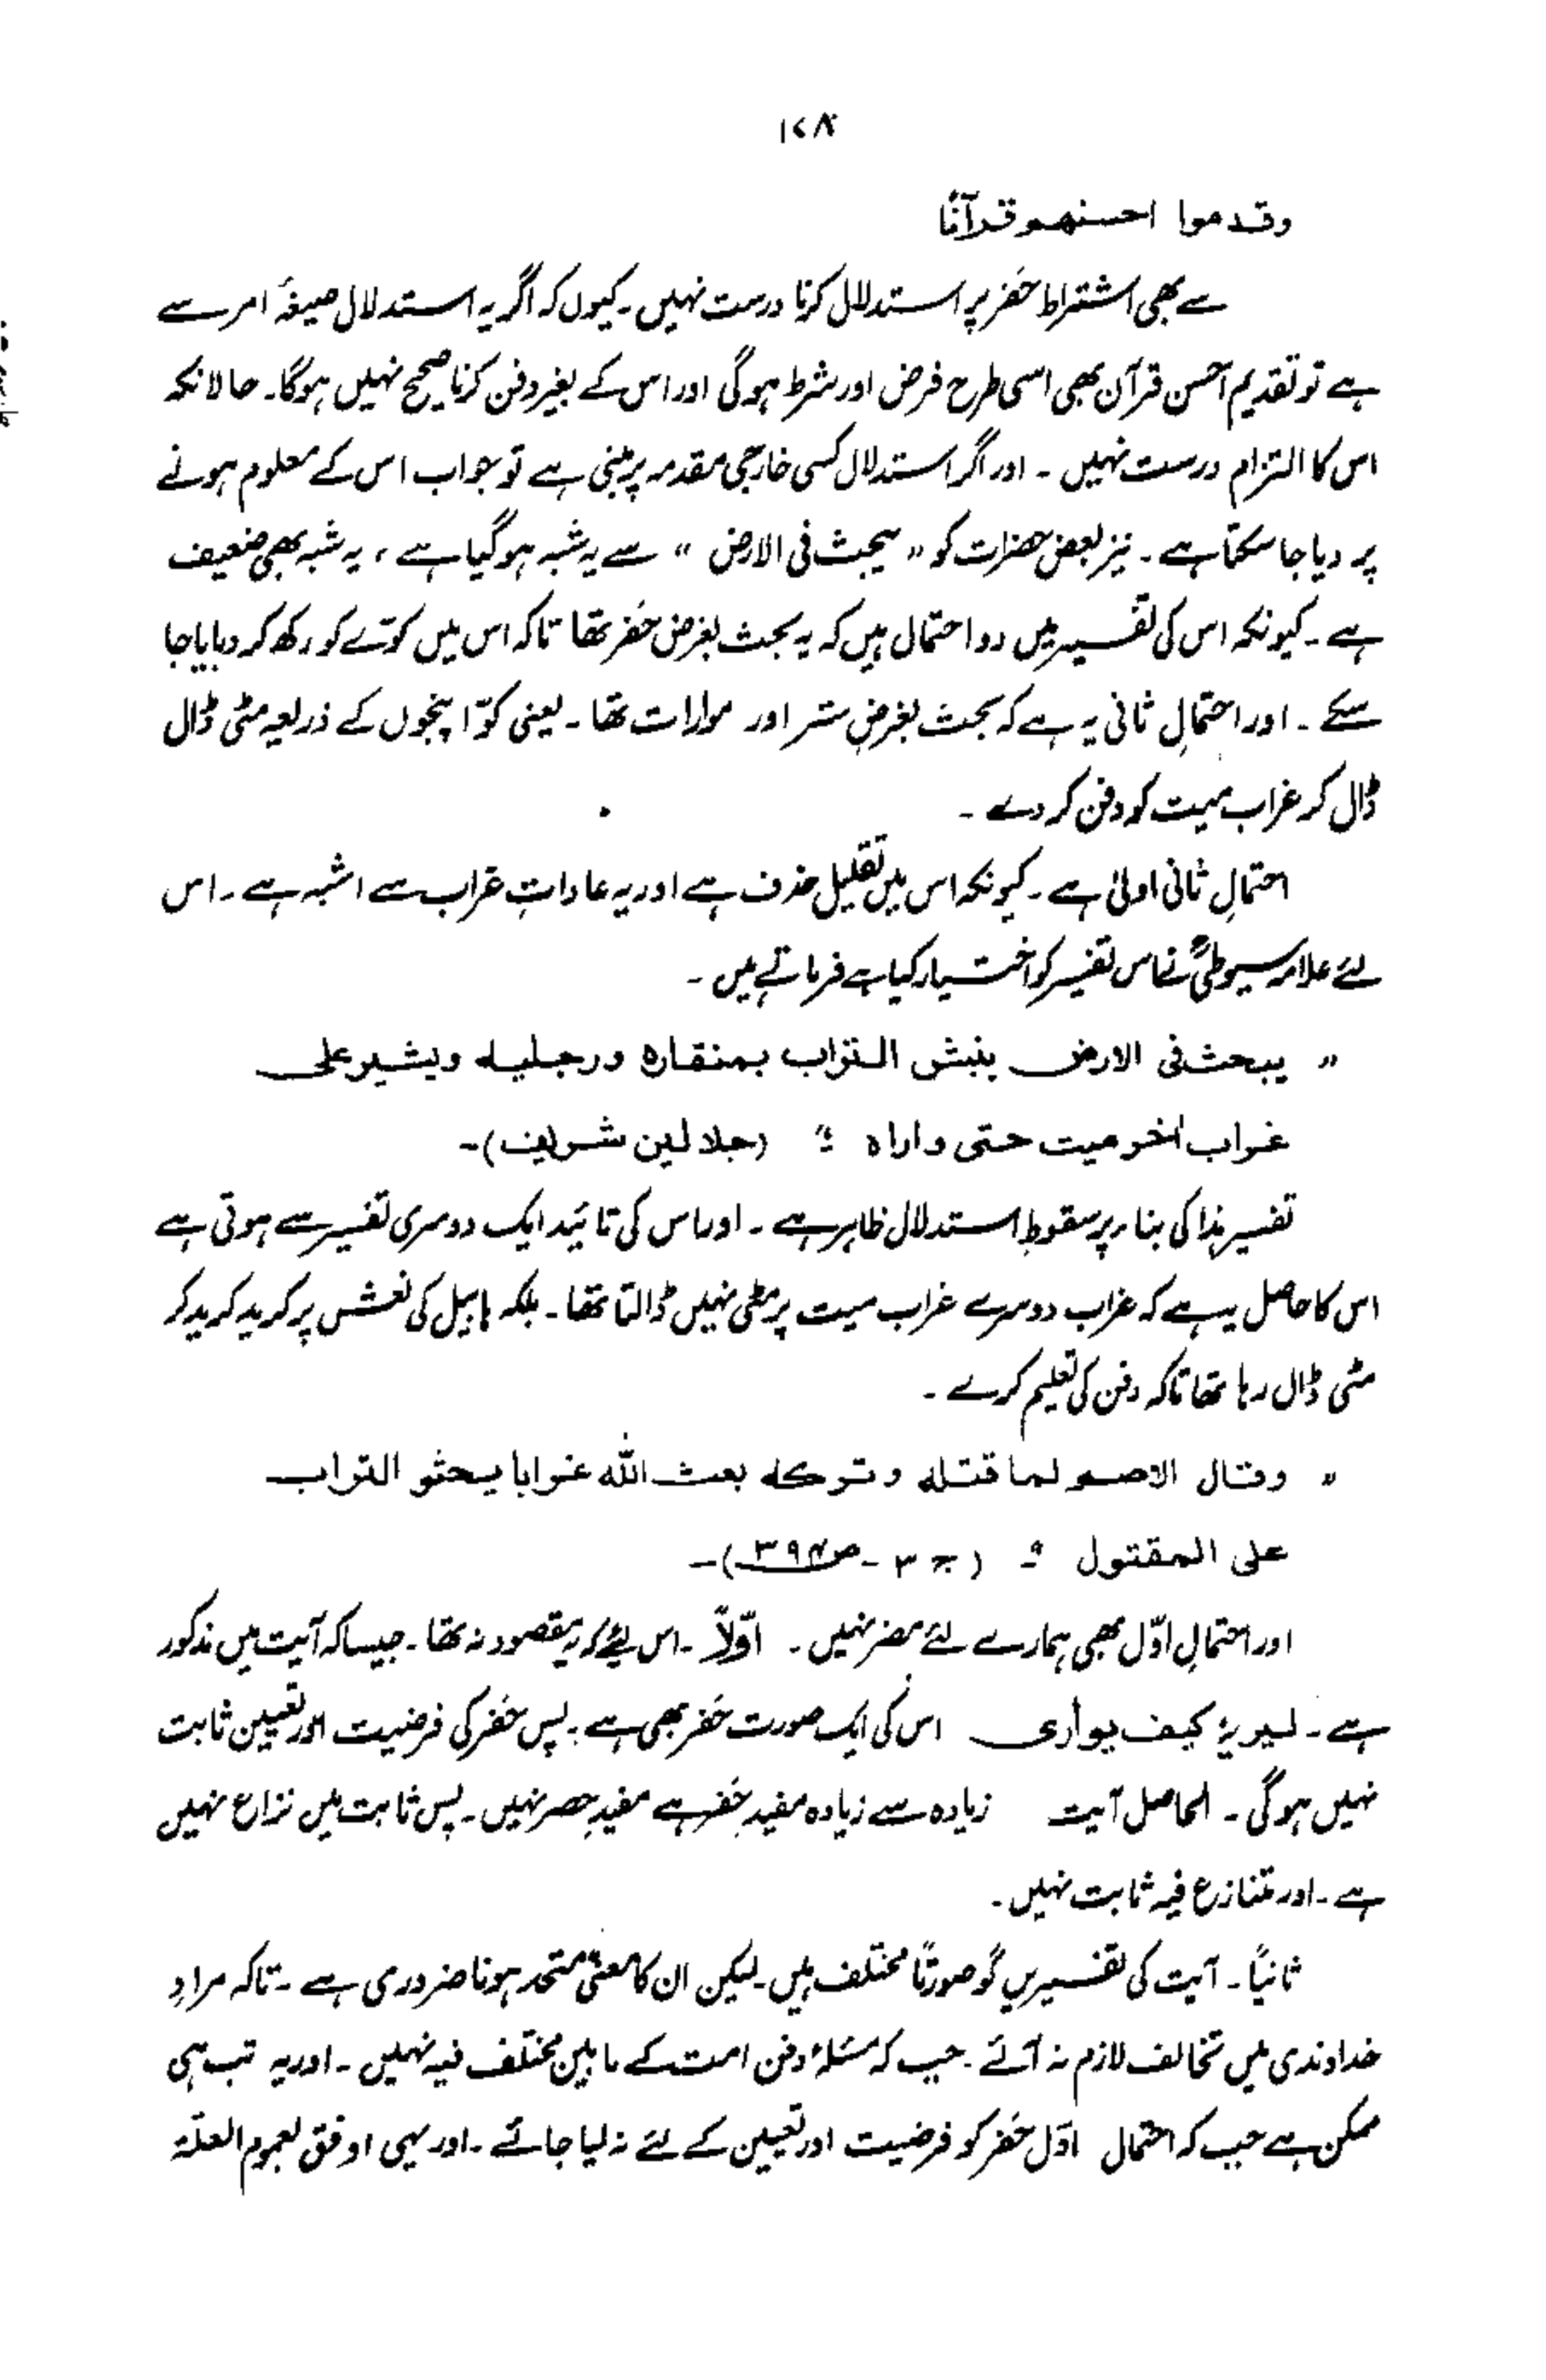 ۱۷۸
وقدموا احسنهم قرآنًا
سے بھی اشتراط حَفر پر استدلال کرنا درست نہیں۔ کیوں کہ اگر یہ استدلال صیغۂ امر سے
ہے تو تقدیم احسن قرآن بھی اسی طرح فرض اور شرط ہوگی اور اس کے بغیر دفن کرنا صحیح نہیں ہوگا۔ حالانکہ
اس کا التزام درست نہیں ۔ اور اگر استدلال کسی خارجی مقدمہ پر مبنی ہے تو جواب اس کے معلوم ہونے
پر دیا جا سکتا ہے ۔ نیز بعض حضرات کو " یبحث فی الارض " سے یہ شبہ ہو گیا ہے ، یہ شبہ بھی ضعیف
ہے ۔ کیونکہ اس کی تفسیر میں دو احتمال ہیں کہ یہ بحث بغرض حَفر تھا تاکہ اس میں کوّے کو رکھ کر دبایا جا
سکے ۔ اور احتمالِ ثانی یہ ہے کہ بحث بغرضِ ستر اور موارات تھا ۔ یعنی کوّا پنجوں کے ذریعہ مٹی ڈال
ڈال کر غراب میت کو دفن کر دے ۔
احتمالِ ثانی اولیٰ ہے ۔ کیونکہ اس میں تقلیل حذف ہے اور یہ عاداتِ غراب سے اشبہ ہے ۔ اس
لئے علامہ سیوطیؒ نے اس تفسیر کو اختیار کیا ہے فرماتے ہیں ۔
" یبحث فی الارض ینبش التراب بمنقاره ورجلیہ ویثیر علی
غراب اٰخر میت حتی واراہ " (جلالین شریف)۔
تفسیر ہٰذا کی بناء پر سقوطِ استدلال ظاہر ہے ۔ اور اس کی تائید ایک دوسری تفسیر سے ہوتی ہے
اس کا حاصل یہ ہے کہ غراب دوسرے غراب میت پر مٹی نہیں ڈالتا تھا ۔ بلکہ ہابیل کی نعش پر کرید کرید کر
مٹی ڈال رہا تھا تاکہ دفن کی تعلیم کرے ۔
" وقال الاصم لما قتلہ وترکہ بعث اللّٰہ غرابا یحثو التراب
علی المقتول " (ج ۳ ۔ ص)۔
اور احتمالِ اوّل بھی ہمارے لئے مضر نہیں ۔ اوّلاً ۔ اس لئے کہ یہ مقصود نہ تھا ۔ جیسا کہ آیت میں مذکور
ہے ۔ لیریہ کیف یواری اس کی ایک صورت حَفر بھی ہے ۔ پس حَفر کی فرضیت اور تعیین ثابت
نہیں ہوگی ۔ الحاصل آیت زیادہ سے زیادہ مفیدِ حَفر ہے مفیدِ حصر نہیں ۔ پس ثابت میں نزاع نہیں
ہے ۔ اور متنازع فیہ ثابت نہیں ۔
ثانیاً ۔ آیت کی تفسیریں گو صورتاً مختلف ہیں ۔ لیکن ان کا معنیً متحد ہونا ضروری ہے ۔ تاکہ مرادِ
خداوندی میں تخالف لازم نہ آئے ۔ جب کہ مسئلہ دفن امت کے مابین مختلف فیہ نہیں ۔ اور یہ تب ہی
ممکن ہے جب کہ احتمال اوّل حَفر کو فرضیت اور تعیین کے لئے نہ لیا جائے ۔ اور یہی اوفق لعموم العلّۃ